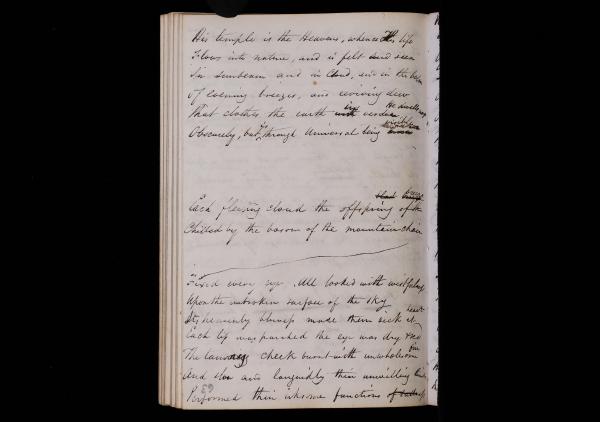 His temple is the Heavens, whence His life
Flows into nature, and is felt and seen
In sunbeam and in cloud, and in the
of evening breezes, and reviving dew
That clothes the earth with in verdure He dwells
Obscurely, but through Universal being
Each fleecing cloud the offspring of the
Chilled by the bosom of the mountain chain
Fixed every eye. All looked with wistful
Upon the unbroken surface of the sky
Its heavenly blueness made them sick at heart
Each lip was parched the eye was dry & red
The cheek burnt with unwholesome fire
And arms languidly their unwilling
Performed their irksome functions of
63